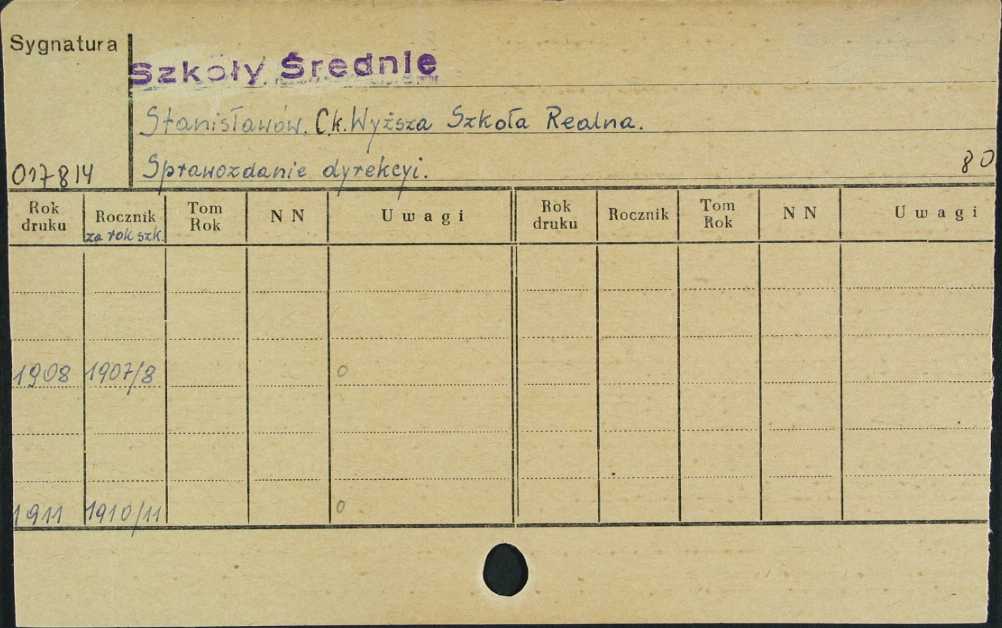 Sygnatura
Szkoły Średnie
Stanisławów. Ck. Wyższa Szkoła Realna.
017814 Sprawozdanie dyrekcyi. 80
Rok druku Rocznik za rok szk. Tom Rok N N Uwagi Rok druku Rocznik Tom Rok N N Uwagi
1908 1907/8 0
1911 1910/11 0